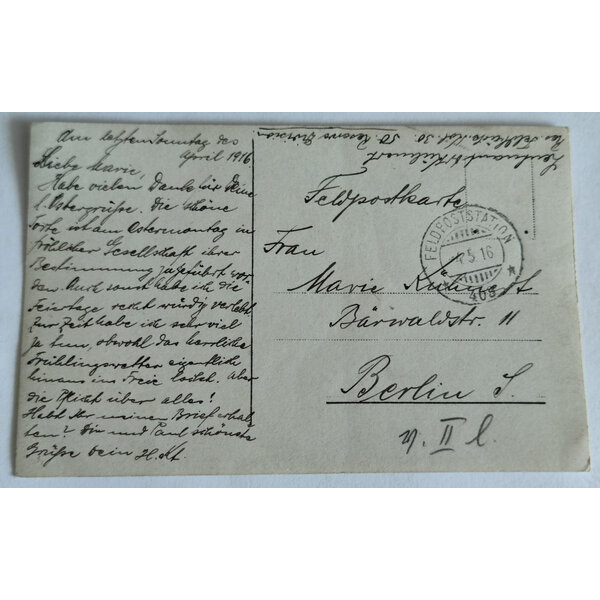 Am letzten Sonntag des
April 1916
Liebe Marie,
Habe vielen Dank für Deine
l. Ostergrüße. Die schöne
Torte ist am Ostermontag in
fröhlicher Gesellschaft ihrer
Bestimmung zugeführt wor-
den. Auch sonst habe ich die
Feiertage recht würdig verlebt.
Zur Zeit habe ich sehr viel
zu tun, obwohl das herrliche
Frühlingswetter eigentlich
hinaus ins Freie lockt. Aber
die Pflicht über alles!
Habt Ihr meinen Brief erhal-
ten? Dir und Paul schönste
Grüße Dein
50. Reserve Division
Feldpostkarte
FELDPOSTSTATION
4.5.16
406
Frau
Marie
Bärwaldstr. 11
Berlin S.
II l.